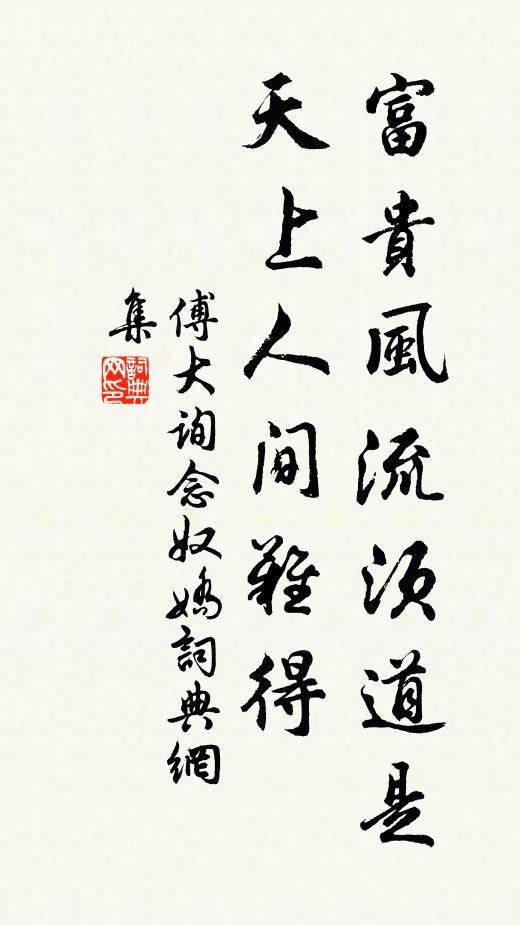 富貴風流須道是
天上人間難得
傅大詢念奴嬌詞典網
集
詞典
网印